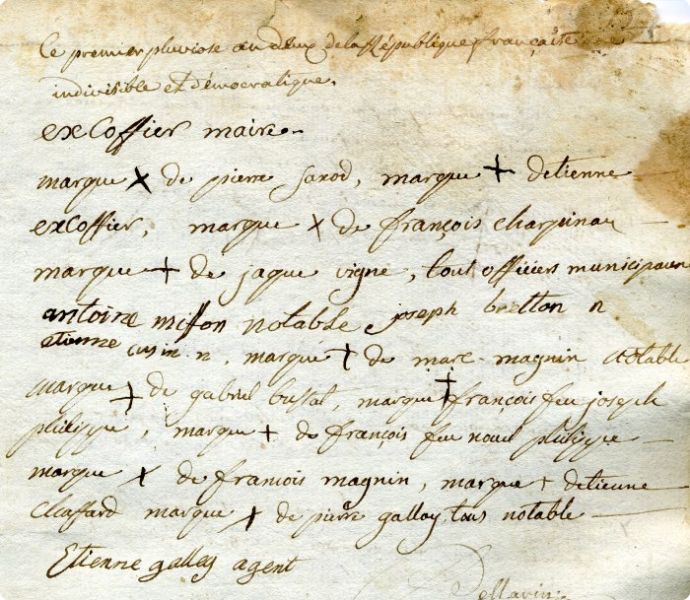 Ce premier pluviose an deux de la République française
indivisible et démocratique.
exCoffier maire
marque X de pierre saxod, marque + detienne
exCoffier, marque X de françois charpinau
marque + de jaque vigne, tout officiers municipaux
antoine miffon notable joseph bretton n
etienne cusin n. marque + de marc magnin notable
marque + de gabriel bussat, marque + françois feu joseph
philippe, marque + de françois feu nouel philippe
marque X de franiois magnin, marque + detienne
Chaffard marque X de pierre gallay tous notable
Etienne gallay agent